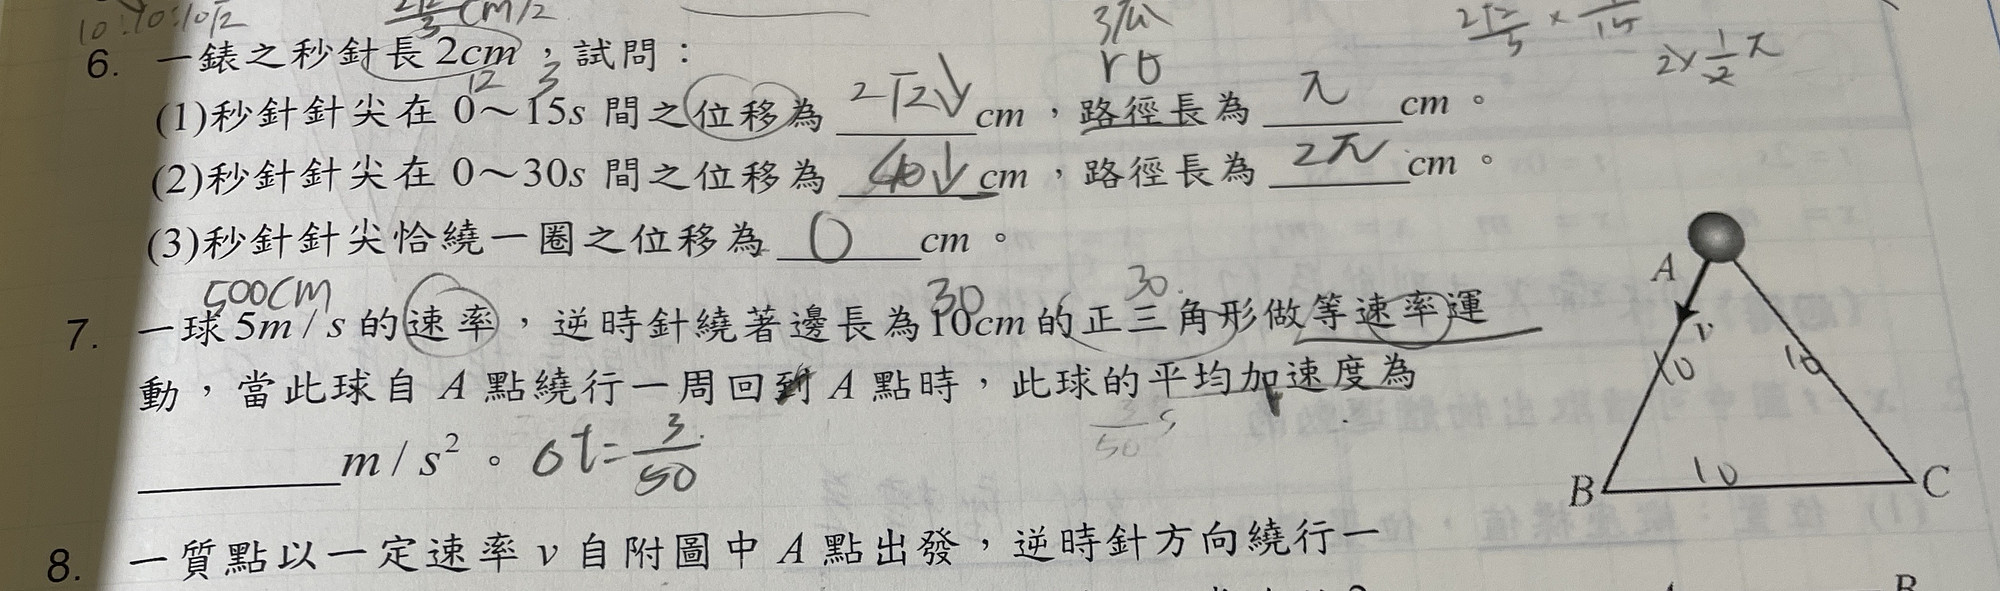 10:10:10√2
3/4
2√2/3 × 1/15
rθ
2×1/2π
6. 一錶之秒針長 2cm，試問：
12 3
(1)秒針針尖在 0～15s 間之位移為 2√2↓ cm，路徑長為 π cm。
(2)秒針針尖在 0～30s 間之位移為 ↓ cm，路徑長為 2π cm。
(3)秒針針尖恰繞一圈之位移為 0 cm。
500cm
30
30
7. 一球 5m/s 的速率，逆時針繞著邊長為10cm的正三角形做等速率運
動，當此球自 A 點繞行一周回到 A 點時，此球的平均加速度為
3/50 s
m/s²。 Δt=3/50
A
v
10
10
10
B
C
8. 一質點以一定速率 v 自附圖中 A 點出發，逆時針方向繞行一